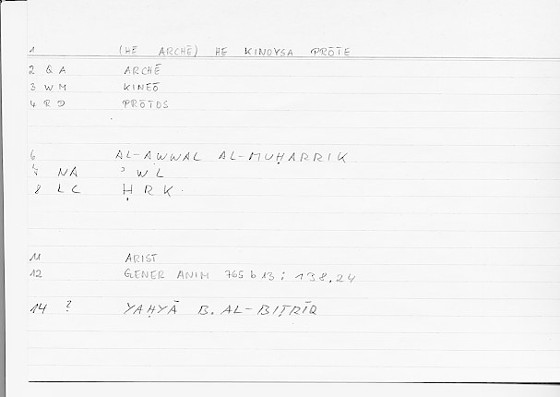 1 (HĒ ARCHĒ) HE KINOYSA PRŌTE
2 & A ARCHĒ
3 W M KINEŌ
4 R D PRŌTOS
6 AL-AWWAL AL-MUḤARRIK
NA ʾ W L
L C Ḥ R K
11 ARIST
12 GENER ANIM 765 b 13 ; 138.24
14 ? YAḤYĀ B. AL-BIṬRĪQ